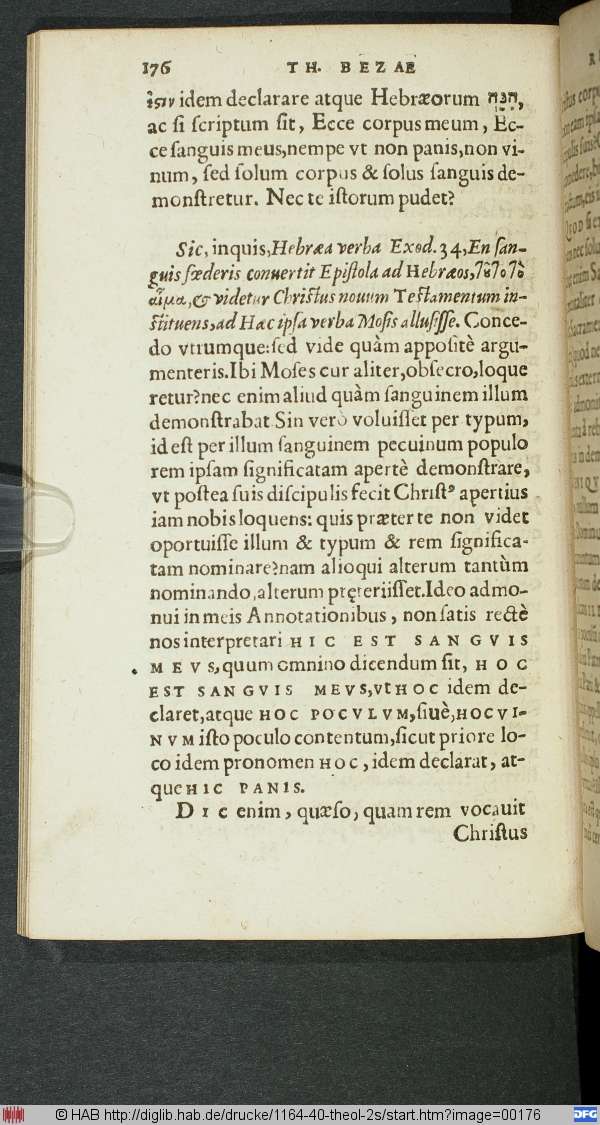 176 TH. BEZAE
idem declarare atque Hebræorum הנה,
ac si scriptum sit, Ecce corpus meum, Ec-
ce sanguis meus, nempe vt non panis, non vi-
num, sed solum corpus & solus sanguis de-
monstretur. Nec te istorum pudet?
Sic, inquis, Hebræa verba Exod. 34, En san-
guis fœderis conuertit Epistola ad Hebræos, τοῦτο τὸ
αἷμα, & videtur Christus nouum Testamentum in-
stituens, ad Hæc ipsa verba Mosis allusisse. Conce-
do vtrumque: sed vide quàm appositè argu-
menteris. Ibi Moses cur aliter, obsecro, loque
retur? nec enim aliud quàm sanguinem illum
demonstrabat Sin verò voluisset per typum,
id est per illum sanguinem pecuinum populo
rem ipsam significatam apertè demonstrare,
vt postea suis discipulis fecit Christꝰ apertius
iam nobis loquens: quis præter te non videt
oportuisse illum & typum & rem significa-
tam nominare? nam alioqui alterum tantùm
nominando, alterum pręteriisset. Ideo admo-
nui in meis Annotationibus, non satis rectè
nos interpretari HIC EST SANGVIS
MEVS, quum omnino dicendum sit, HOC
EST SANGVIS MEVS, vt HOC idem de-
claret, atque HOC POCVLVM, siuè, HOC VI-
NVM isto poculo contentum, sicut priore lo-
co idem pronomen HOC, idem declarat, at-
que HIC PANIS.
DIC enim, quæso, quam rem vocauit
Christus
© HAB http://diglib.hab.de/drucke/1164-40-theol-2s/start.htm?image=00176
DFG